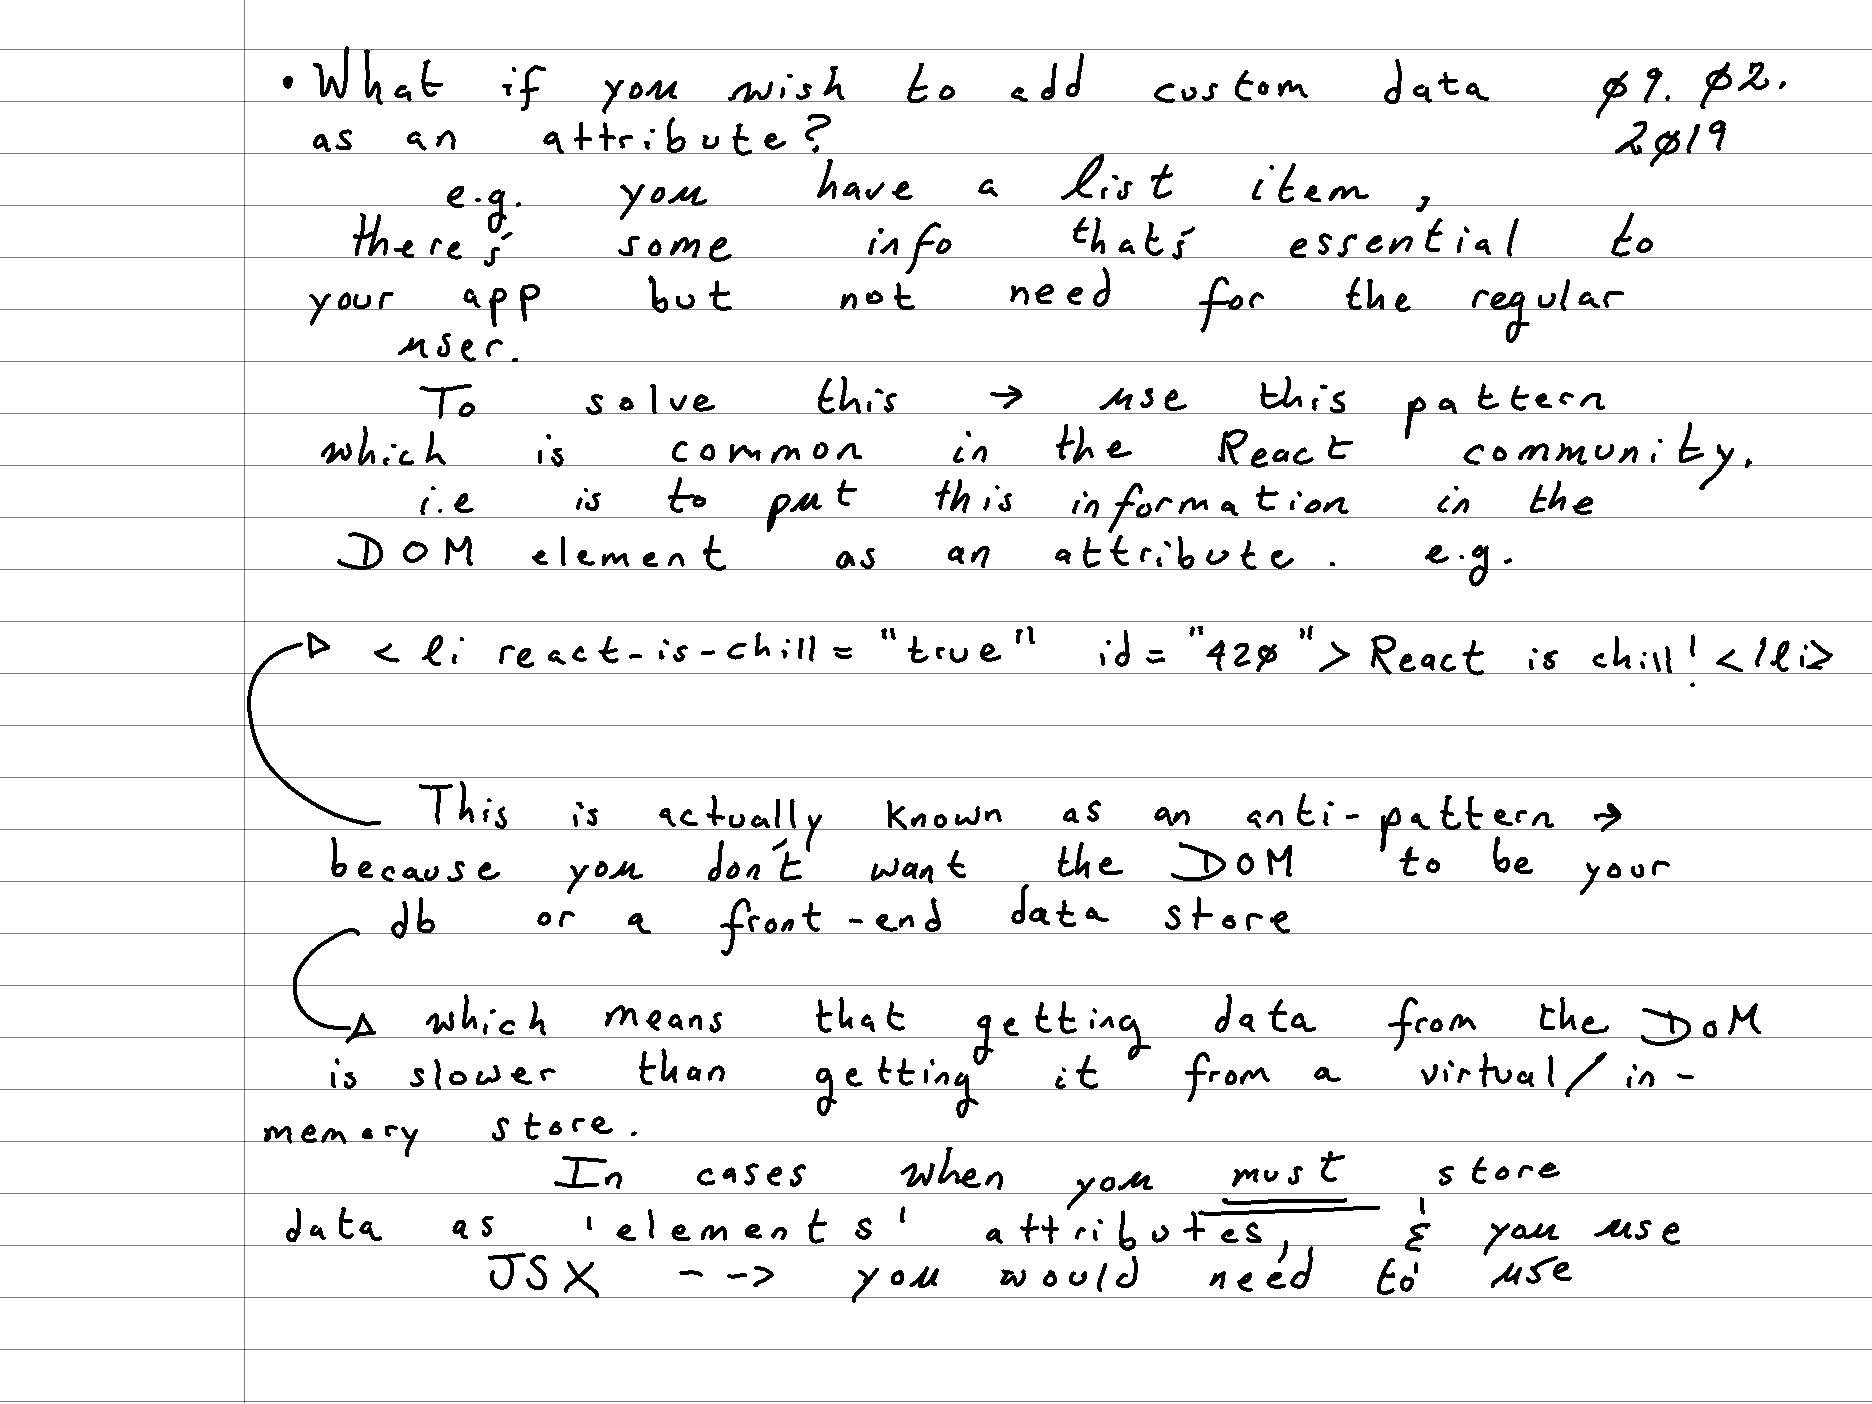 • What if you wish to add custom data ø9. ø2.
as an attribute? 2ø19
e.g. you have a list item,
there's some info that's essential to
your app but not need for the regular
user.
To solve this → use this pattern
which is common in the React community.
i.e is to put this information in the
DOM element as an attribute. e.g.
<li react-is-chill="true" id="42ø">React is chill!</li>
This is actually known as an anti-pattern →
because you don't want the DOM to be your
db or a front-end data store
which means that getting data from the DOM
is slower than getting it from a virtual/in-
memory store.
In cases when you must store
data as 'elements' attributes, & you use
JSX --> you would need to use